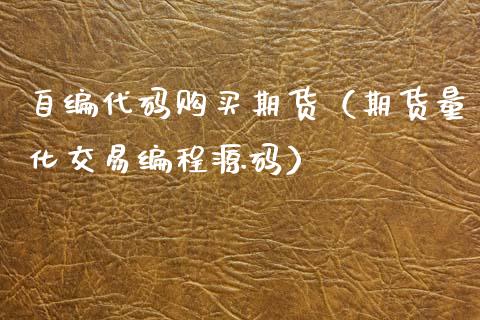 自编代码购买期货（期货量
化交易编程源码）